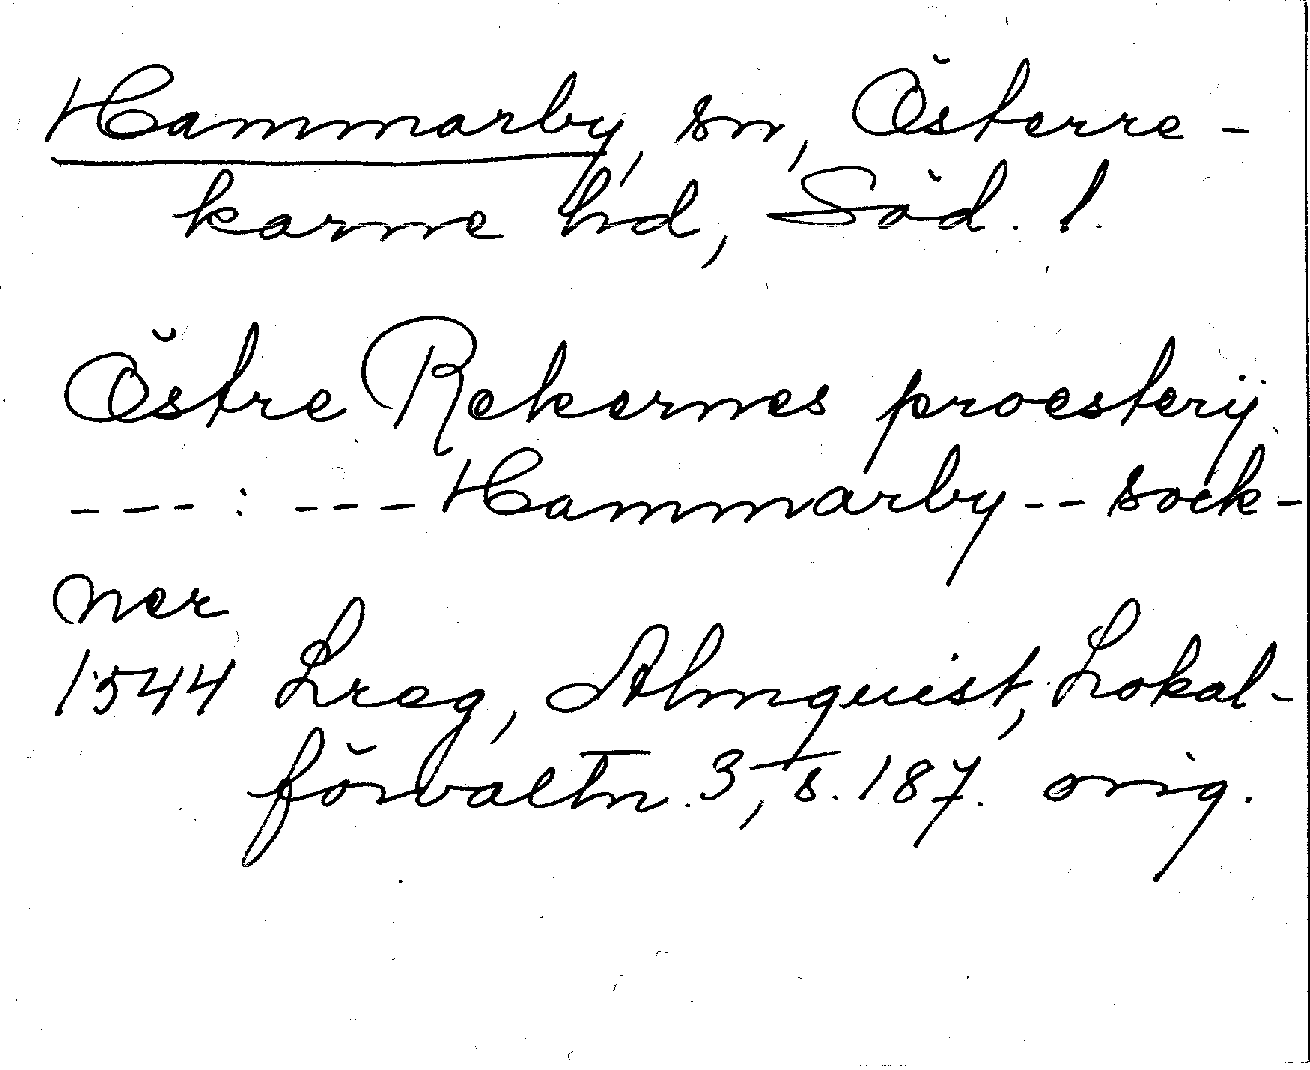 Hammarby, sn, Österre-
karne hd, Söd. l.
Östre Rekernes proesterij
---:---Hammarby--sock-
ner
1544 Lreg, Almquist, Lokal-
förvaltn. 3, s. 187. orig.